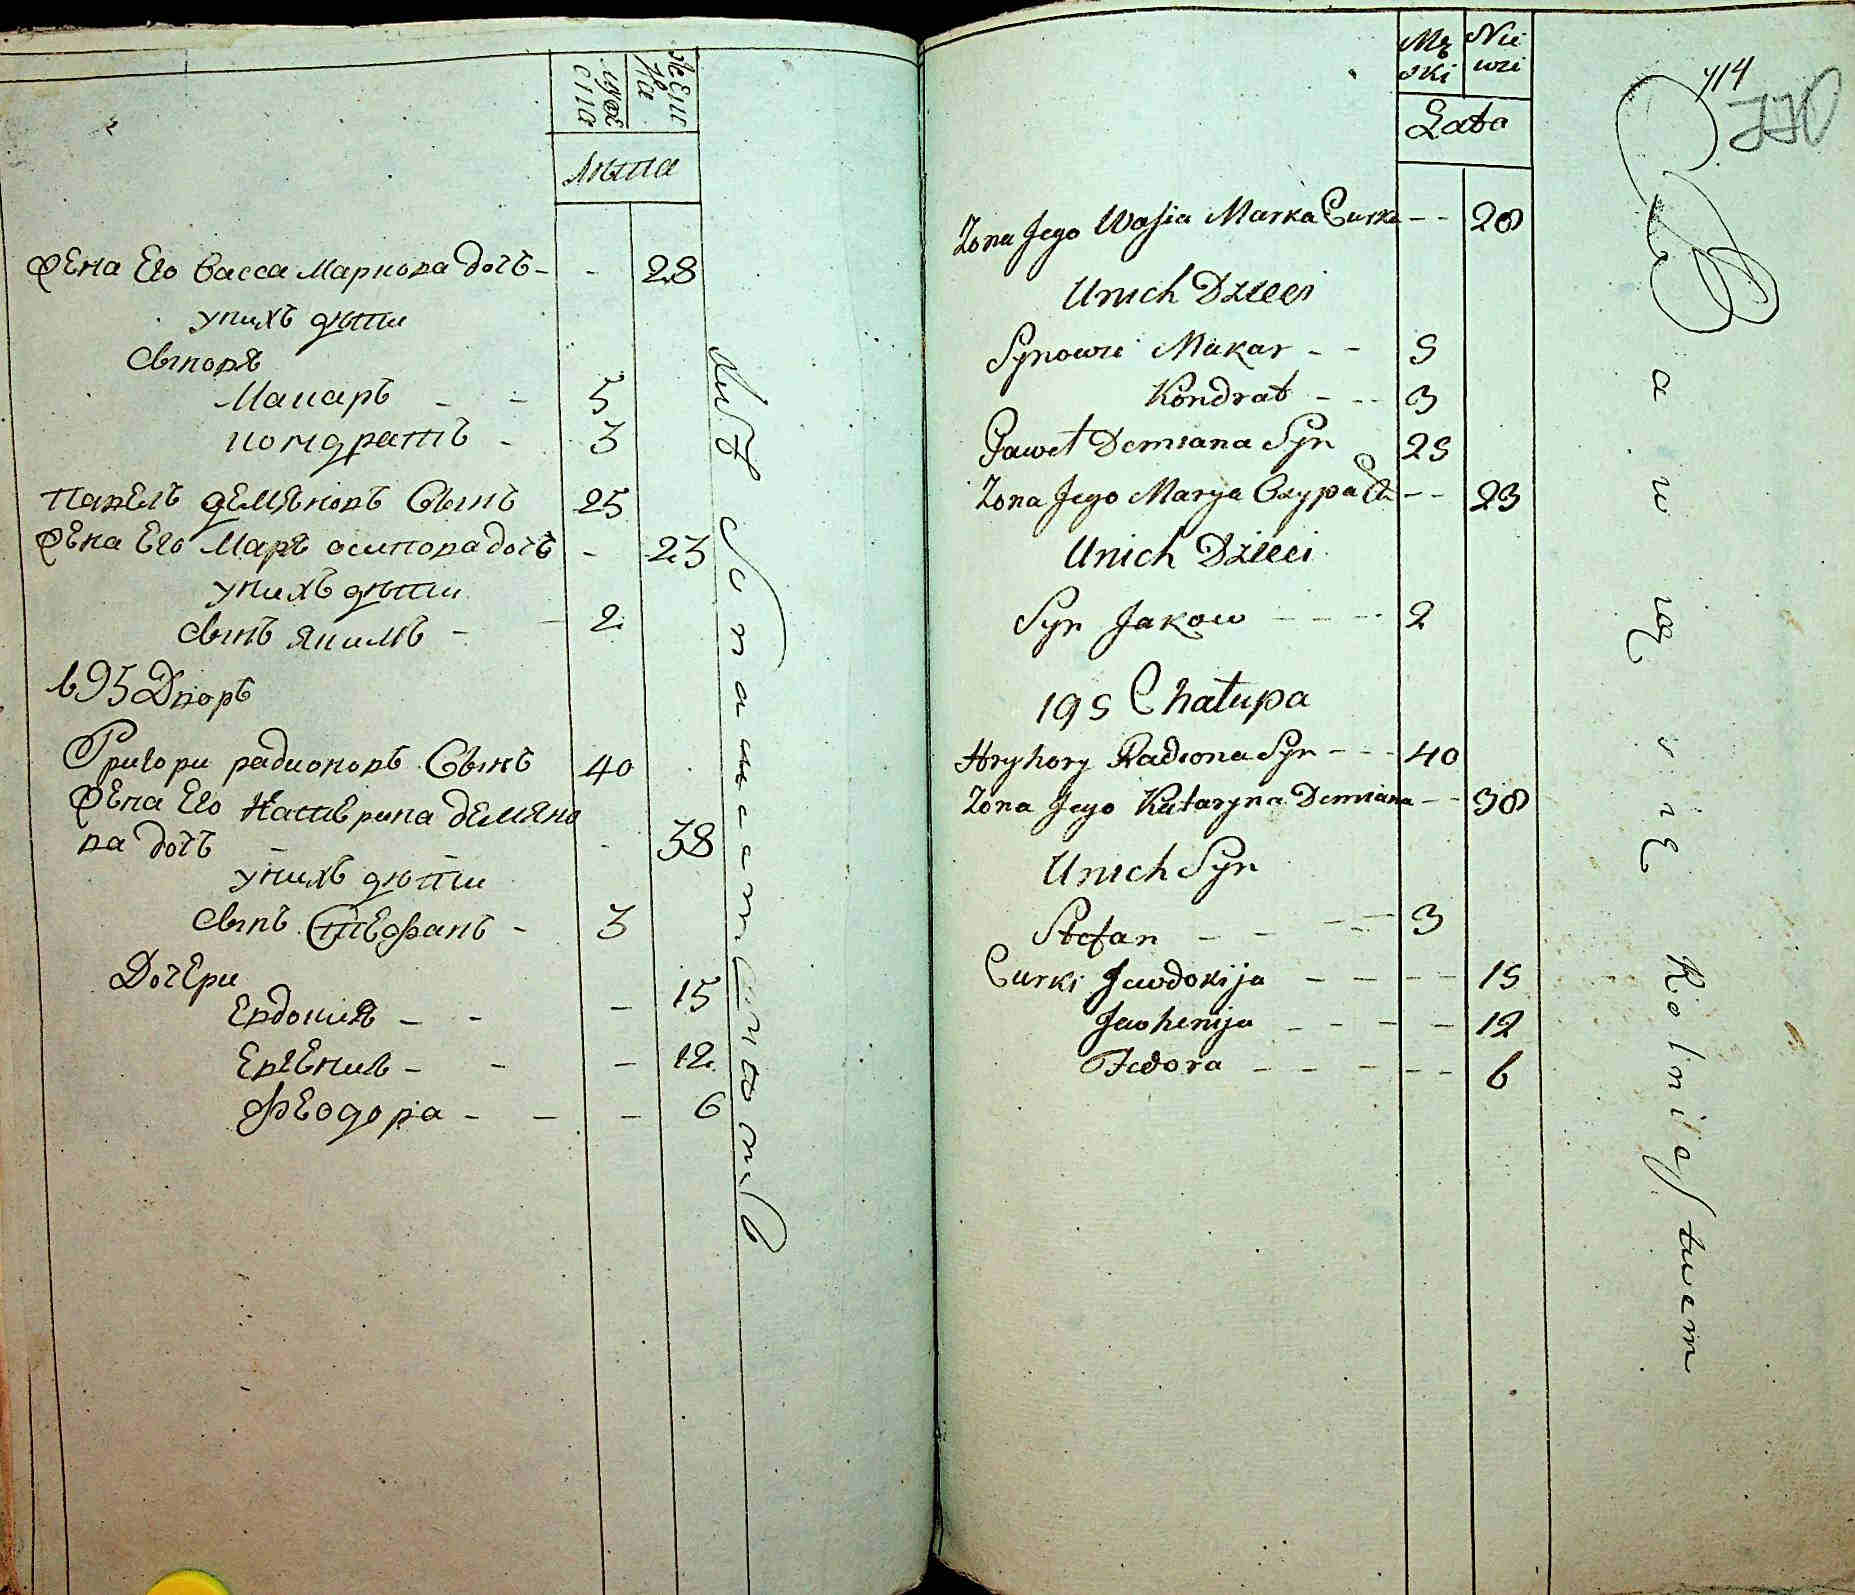 Мужеска
Женска
Лѣта
Жена Его Васса Маркова дочь - - 28
у нихъ дѣти
Сыновя
Макаръ - - 5
Кондратъ - 3
Павелъ Демяновъ Сынъ 25
Жена Его Маря осипова дочь - 23
у нихъ дѣти
Сынъ Якимъ - - 2
195 Дворъ
Григори радионовъ Сынъ 40
Жена Его Катерина демяно
ва дочь - - - 38
у нихъ дѣти
Сынъ Стефанъ - 3
Дочери
Евдокия - - - 15
Евгения - - - 12
Феодора - - - 6
хлебопашеством
Męzki
Niewzi
Lata
Zona Jego Wasia Marka Curka - - 28
U nich Dzieci
Synowie Makar - - 5
Kondrat - - - 3
Paweł Demiana Syn 25
Zona Jego Marya Osypa Cu - - 23
U nich Dzieci
Syn Jakow - - - - 2
195 Chałupa
Hryhory Radiona Syn - - - 40
Zona Jego Katarzyna Demiana - - 38
U nich Syn
Stefan - - - - 3
Curki Jewdokija - - - - 15
Jewhenija - - - - 12
Fedora - - - - - - 6
414
Bawią się Rolnictwem